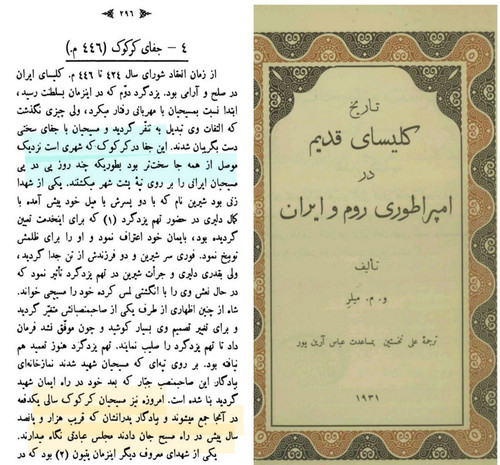 ۲۹۶
۴ - جفای کرکوک (۴۴۶ م.)
از زمان انعقاد شورای سال ۴۲۴ تا ۴۴۶ م. کلیسای ایران
در صلح و آرامی بود. یزدگرد دوّم که در اینزمان بسلطنت رسید،
ابتدا نسبت بمسیحیان با مهربانی رفتار میکرد، ولی چیزی نگذشت
که التفات وی تبدیل به تنفّر گردید و مسیحیان با جفای سختی
دست بگریبان شدند. این جفا در کرکوک که شهری است نزدیک
موصل از همه جا سخت‌تر بود بطوریکه چند روز پی در پی
مسیحیان ایرانی را بر روی تپهٔ پشت شهر میکشتند. یکی از شهدا
زنی بود شیرین نام که با دو پسرش با میل خود پیش آمده با
کمال دلیری در حضور تهم یزدگرد (۱) که برای اینخدمت تعیین
گردیده بود، بایمان خود اعتراف نمود و او را برای ظلمش
توبیخ نمود. فوری سر شیرین و دو فرزندش از تن جدا گردید،
ولی بقدری دلیری و جرأت شیرین در تهم یزدگرد تأثیر نمود که
در حال نعش وی را با انگشتی لمس کرده خود را مسیحی خواند.
شاه از چنین اظهاری از طرف یکی از صاحبمنصبانش متغیّر گردید
و برای تغییر تصمیم وی بسیار کوشید و چون موفّق نشد فرمان
داد تا تهم یزدگرد را صلیب نمایند. تهم یزدگرد هنوز تعمید هم
نیافته بود. بر روی تپه‌ای که مسیحیان شهید شدند نمازخانه‌ای
بیادگار این صاحبمنصب جبّار که بعد خود در راه ایمان شهید
گردید بنا شده است. امروزه نیز مسیحیان کرکوک سالی یکدفعه
در آنجا جمع میشوند و بیادگار پدرانشان که قریب هزار و پانصد
سال پیش در راه مسیح جان دادند مجلس عبادتی نگاه میدارند.
یکی از شهدای معروف دیگر اینزمان پثیون (۲) بود که در
تاریخ
کلیسای قدیم
در
امپراطوری روم و ایران
تألیف
و . م . میلر
ترجمهٔ علی نخستین بمساعدت عباس آرین پور
۱۹۳۱